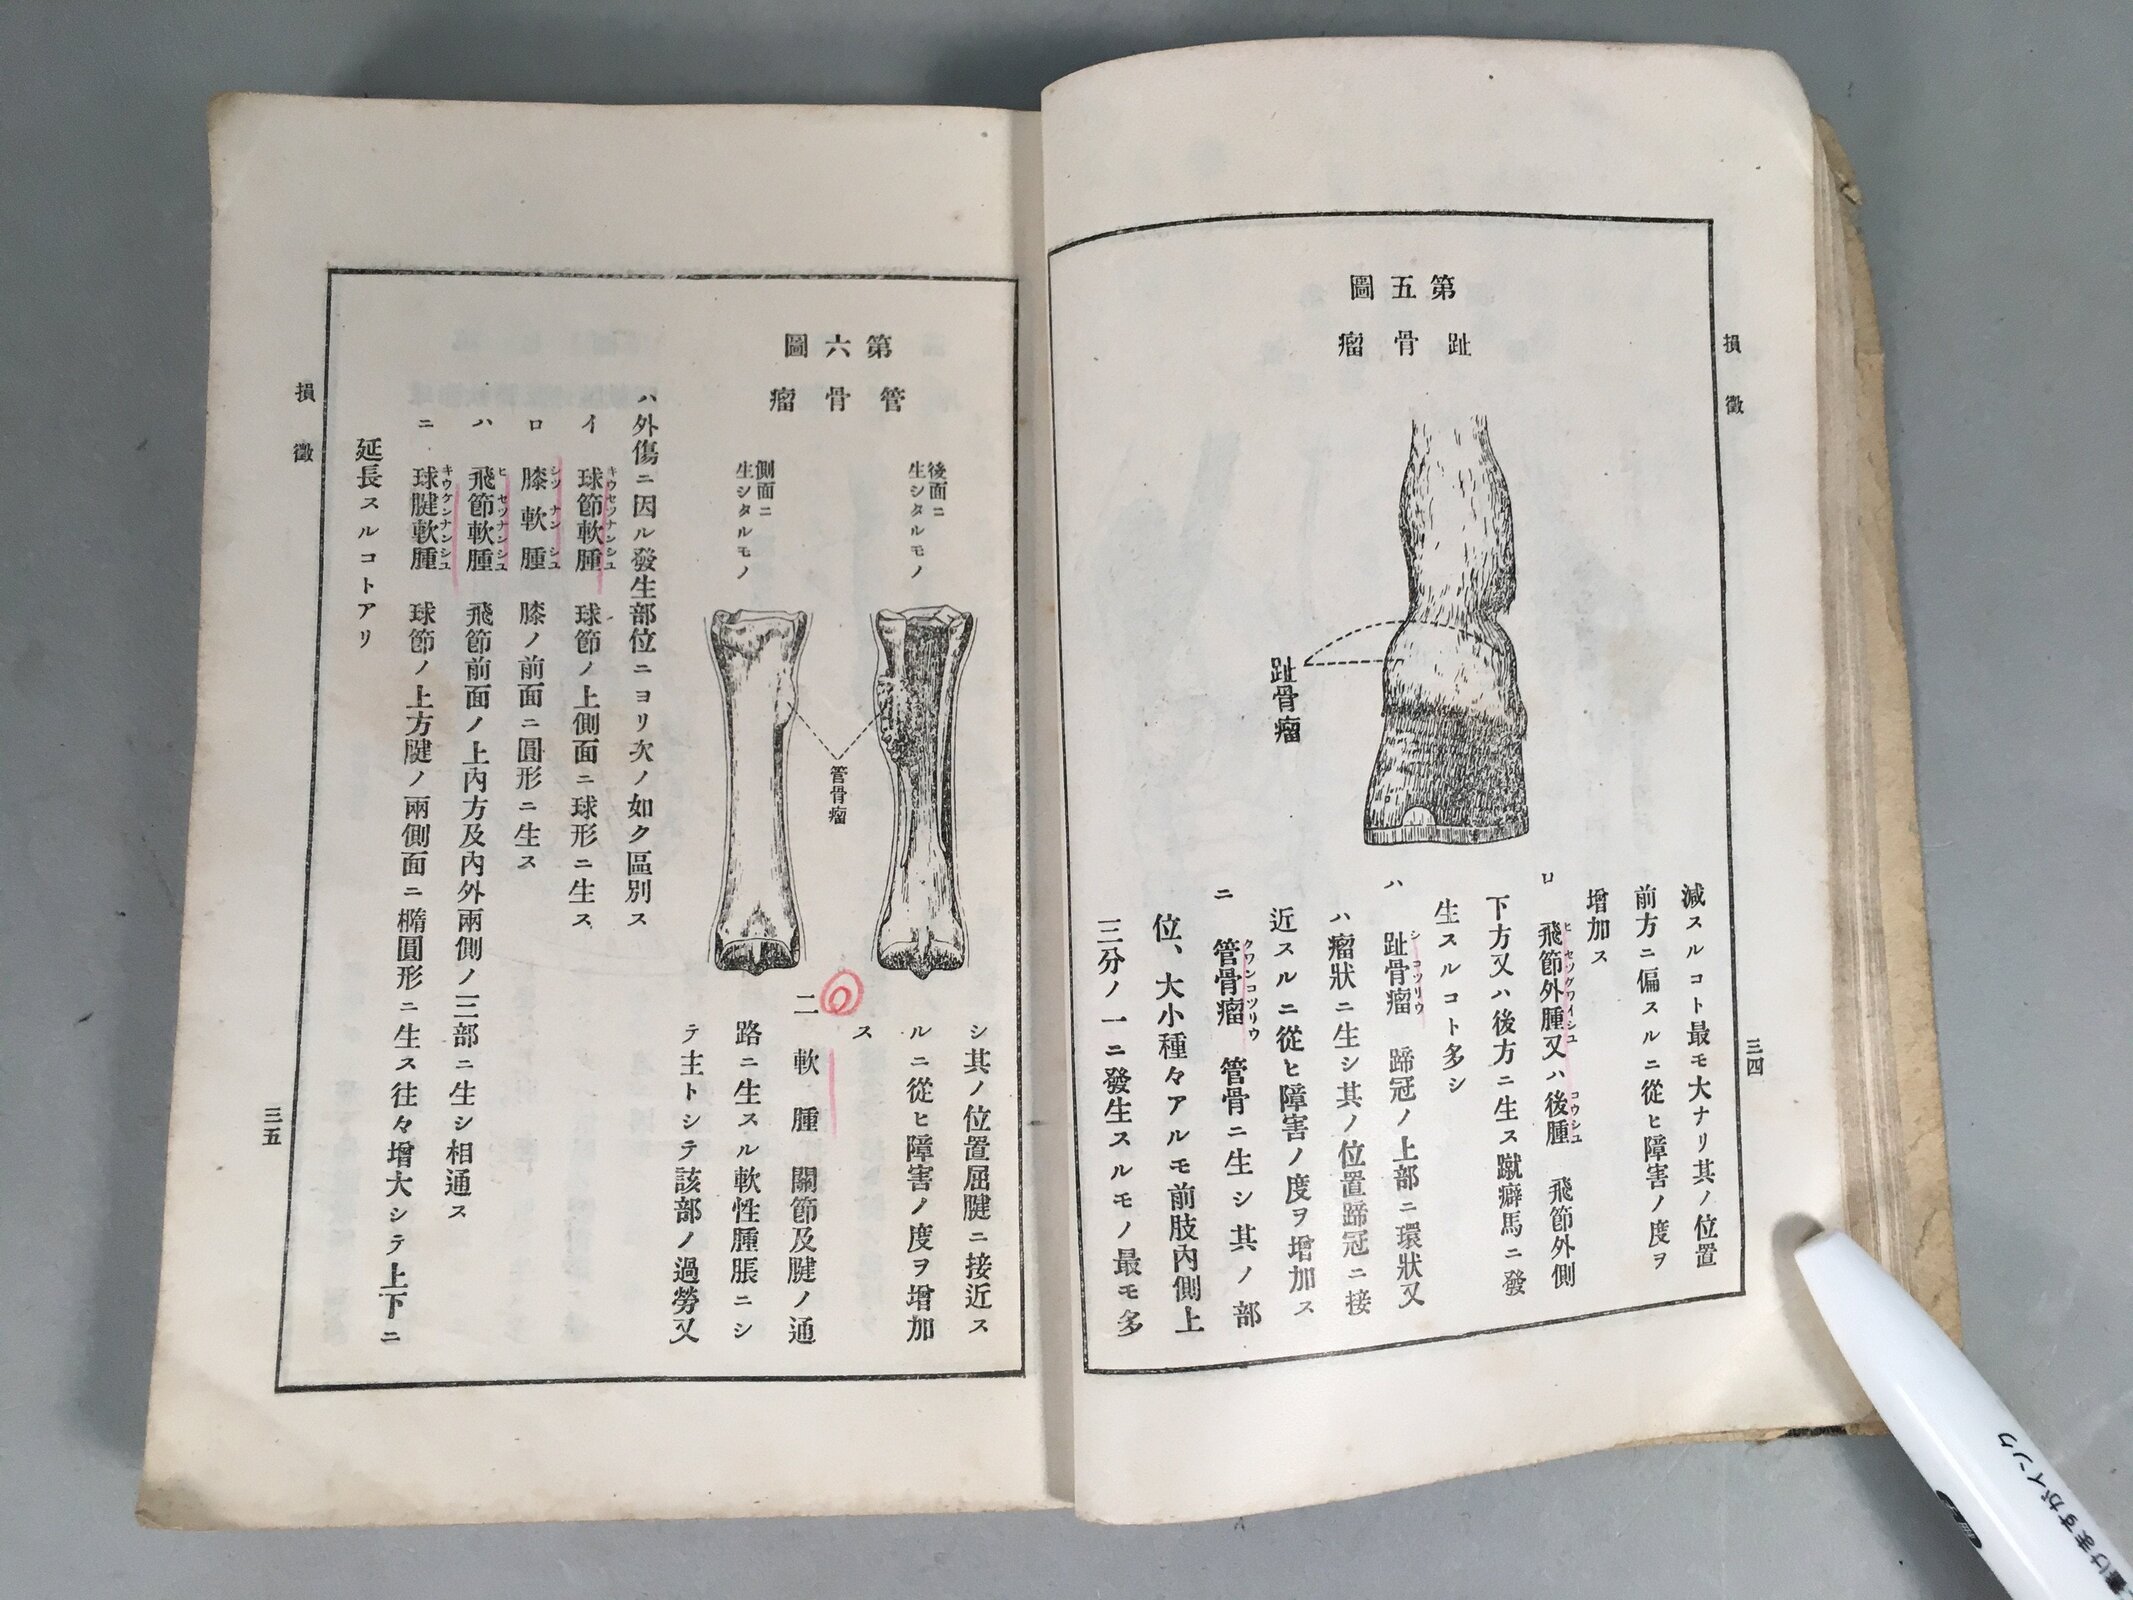 損徵
三四
第五圖
趾骨瘤
趾骨瘤
減スルコト最モ大ナリ其ノ位置
前方ニ偏スルニ從ヒ障害ノ度ヲ
增加ス
ロ 飛節外腫又ハ後腫 飛節外側
ヒセツグワイシユ コウシユ
下方又ハ後方ニ生ス蹴癖馬ニ發
生スルコト多シ
ハ 趾骨瘤 蹄冠ノ上部ニ環狀又
シコツリウ
ハ瘤狀ニ生シ其ノ位置蹄冠ニ接
近スルニ從ヒ障害ノ度ヲ增加ス
ニ 管骨瘤 管骨ニ生シ其ノ部
クワンコツリウ
位、大小種々アルモ前肢內側上
三分ノ一ニ發生スルモノ最モ多
第六圖
管骨瘤
後面ニ
生シタルモノ
側面ニ
生シタルモノ
管骨瘤
シ其ノ位置屈腱ニ接近ス
ルニ從ヒ障害ノ度ヲ增加
ス
二 軟腫 關節及腱ノ通
路ニ生スル軟性腫脹ニシ
テ主トシテ該部ノ過勞又
ハ外傷ニ因ル發生部位ニヨリ次ノ如ク區別ス
イ 球節軟腫 球節ノ上側面ニ球形ニ生ス
キウセツナンシユ
ロ 膝軟腫 膝ノ前面ニ圓形ニ生ス
シツナンシユ
ハ 飛節軟腫 飛節前面ノ上內方及內外兩側ノ三部ニ生シ相通ス
ヒセツナンシユ
ニ 球腱軟腫 球節ノ上方腱ノ兩側面ニ橢圓形ニ生ス往々增大シテ上下ニ
キウケンナンシユ
延長スルコトアリ
損徵
三五
書けますがインク